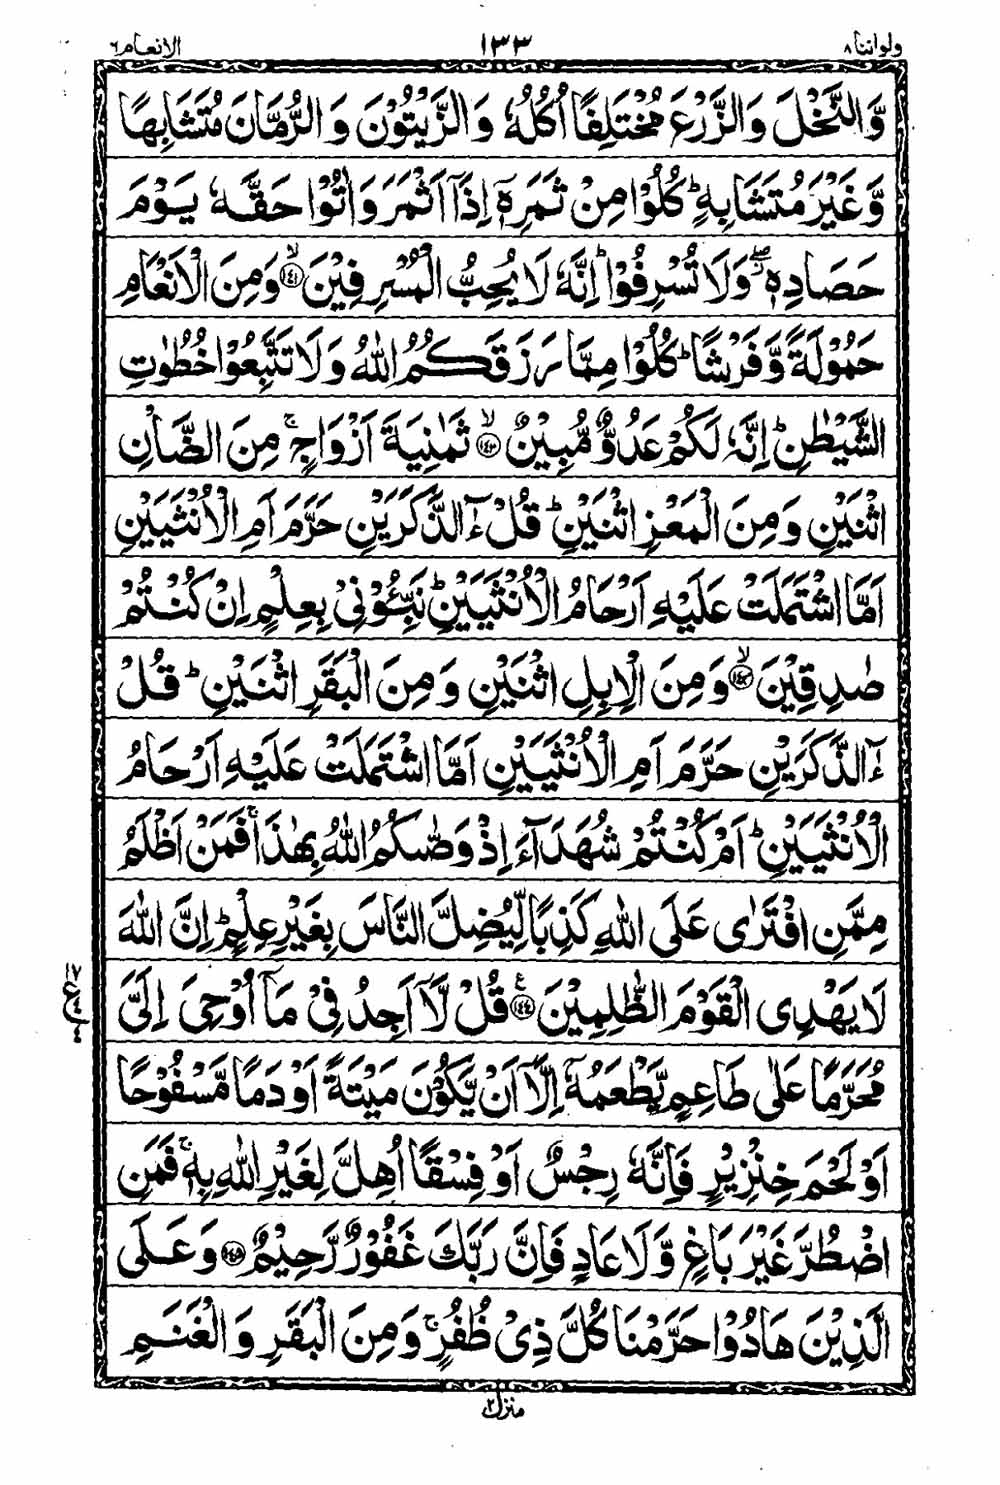 ولواننا ٨
١٣٣
الانعام ٦
وَّالنَّخْلَ وَالزَّرْعَ مُخْتَلِفًا اُكُلُهٗ وَالزَّيْتُوْنَ وَالرُّمَّانَ مُتَشَابِهًا
وَّغَيْرَ مُتَشَابِهٍ ؕ كُلُوْا مِنْ ثَمَرِهٖۤ اِذَاۤ اَثْمَرَ وَاٰتُوْا حَقَّهٗ يَوْمَ
حَصَادِهٖ ۖ وَلَا تُسْرِفُوْا ؕ اِنَّهٗ لَا يُحِبُّ الْمُسْرِفِيْنَ ۙ﴿١٤١﴾ وَمِنَ الْاَنْعَامِ
حَمُوْلَةً وَّفَرْشًا ؕ كُلُوْا مِمَّا رَزَقَكُمُ اللّٰهُ وَلَا تَتَّبِعُوْا خُطُوٰتِ
الشَّيْطٰنِ ؕ اِنَّهٗ لَكُمْ عَدُوٌّ مُّبِيْنٌ ۙ﴿١٤٢﴾ ثَمٰنِيَةَ اَزْوَاجٍ ۚ مِنَ الضَّاْنِ
اثْنَيْنِ وَمِنَ الْمَعْزِ اثْنَيْنِ ؕ قُلْ ءٰٓالذَّكَرَيْنِ حَرَّمَ اَمِ الْاُنْثَيَيْنِ
اَمَّا اشْتَمَلَتْ عَلَيْهِ اَرْحَامُ الْاُنْثَيَيْنِ ؕ نَبِّـُٔوْنِىْ بِعِلْمٍ اِنْ كُنْتُمْ
صٰدِقِيْنَ ۙ﴿١٤٣﴾ وَمِنَ الْاِبِلِ اثْنَيْنِ وَمِنَ الْبَقَرِ اثْنَيْنِ ؕ قُلْ
ءٰٓالذَّكَرَيْنِ حَرَّمَ اَمِ الْاُنْثَيَيْنِ اَمَّا اشْتَمَلَتْ عَلَيْهِ اَرْحَامُ
الْاُنْثَيَيْنِ ؕ اَمْ كُنْتُمْ شُهَدَآءَ اِذْ وَصّٰكُمُ اللّٰهُ بِهٰذَا ۚ فَمَنْ اَظْلَمُ
مِمَّنِ افْتَرٰى عَلَى اللّٰهِ كَذِبًا لِّيُضِلَّ النَّاسَ بِغَيْرِ عِلْمٍ ؕ اِنَّ اللّٰهَ
لَا يَهْدِى الْقَوْمَ الظّٰلِمِيْنَ ﴿١٤٤﴾ ع قُلْ لَّاۤ اَجِدُ فِىْ مَاۤ اُوْحِىَ اِلَىَّ
مُحَرَّمًا عَلٰى طَاعِمٍ يَّطْعَمُهٗۤ اِلَّاۤ اَنْ يَّكُوْنَ مَيْتَةً اَوْ دَمًا مَّسْفُوْحًا
اَوْ لَحْمَ خِنْزِيْرٍ فَاِنَّهٗ رِجْسٌ اَوْ فِسْقًا اُهِلَّ لِغَيْرِ اللّٰهِ بِهٖ ۚ فَمَنِ
اضْطُرَّ غَيْرَ بَاغٍ وَّلَا عَادٍ فَاِنَّ رَبَّكَ غَفُوْرٌ رَّحِيْمٌ ﴿١٤٥﴾ وَعَلَى
الَّذِيْنَ هَادُوْا حَرَّمْنَا كُلَّ ذِىْ ظُفُرٍ ۚ وَمِنَ الْبَقَرِ وَالْغَنَمِ
منزل ٢